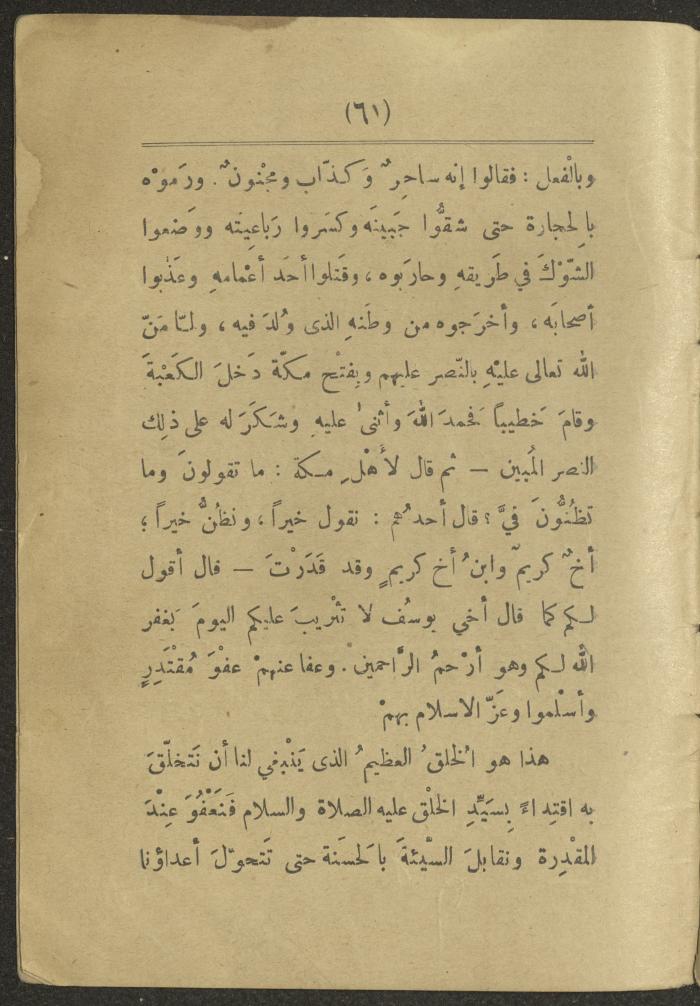 (٦١)
وبالْفعل : فقالوا إنه ساحِرٌ وَكذّاب ومجْنونٌ . ورَموْه
بالحِجارة حتى شقُّوا جَبينَه وكسَروا رَباعِيتَه ووَضعوا
الشّوْكَ في طَريقهِ وحارَبوه ، وقَتلوا أحَد أعْمامهِ وعَذّبوا
أصحابَه ، وأخرَجوه من وطَنهِ الذى وُلدَ فيه ، ولمّا مَنّ
الله تعالى عليْهِ بالنّصر عليهم وبِفتْح مكّة دَخلَ الكَعْبةَ
وقامَ خَطيباً فحمدَ اللهَ وأثنىٰ عليهِ وشَكَرَ له على ذلِك
النصر المُبين – ثم قال لأهْلِ مكة : ما تقولونَ وما
تظُنُّونَ فيَّ ؟ قال أحدهُم : نقول خيراً ، ونظُنُّ خيراً ؛
أخٌ كريمٌ وابنُ أخ كريمٍ وقد قَدَرْتَ – قال أقول
لكم كما قال أخي يوسُف لا تثْريبَ عليكم اليومَ يَغفر
الله لكم وهو أرْحمُ الرَّاحمين . وعفا عنهمْ عفْوَ مُقْتَدِرٍ
وأسْلموا وعَزّ الاسلام بهمْ
هذا هو الخلقُ العظيمُ الذى يَنْبغي لنا أن نَتخلّقَ
به اقتِداءً بِسَيِّدِ الخلْق عليه الصلاة والسلام فَنَعْفُوَ عِنْدَ
المقْدِرة ونقابلَ السّيئةَ بالحَسنة حتى تَتحوّلَ أعداؤنا